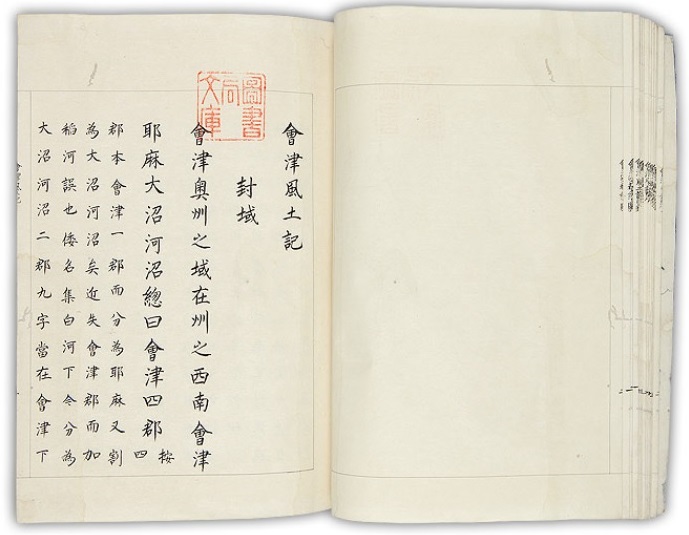 會津風土記
圖書局文庫
封域
會津奧州之域在州之西南會津
耶麻大沼河沼總曰會津四郡按四
郡本會津一郡而分為耶麻又割
為大沼河沼矣近失會津郡而加
稻河誤也倭名集白河下令分為
大沼河沼二郡九字當在會津下